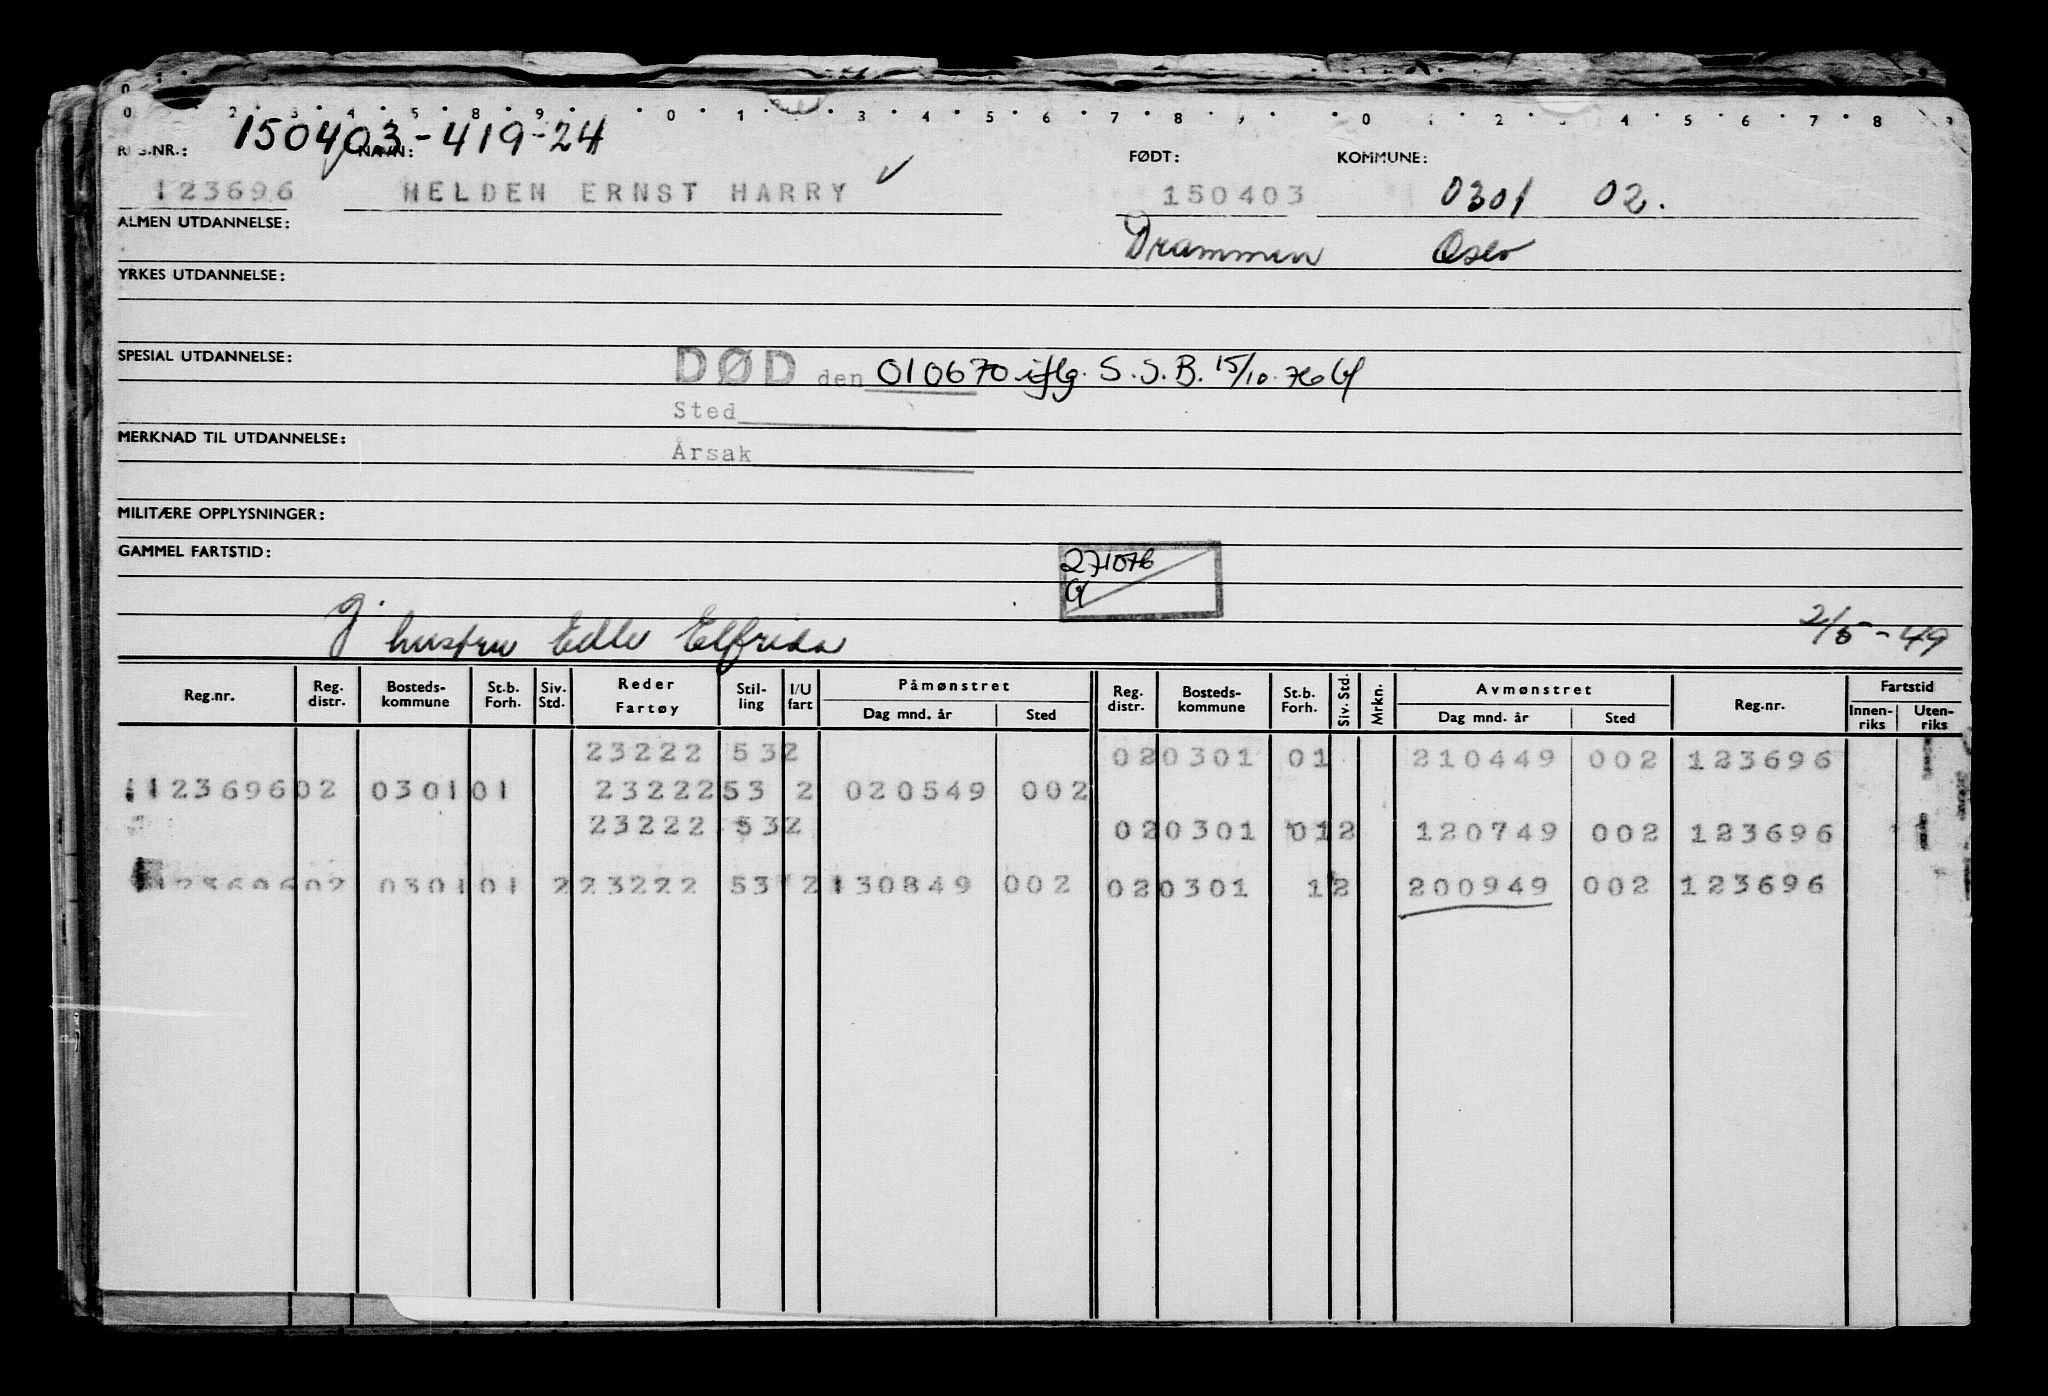 0 2 3 4 5 8 9 0 1 3 4 5 6 7 8 9 0 1 2 3 4 5 6 7 8 9
150403-419-24
REG.NR.: NAVN: FØDT: KOMMUNE:
123696 HELDEN ERNST HARRY ✓ 150403 0301 02.
ALMEN UTDANNELSE: Drammen Oslo
YRKES UTDANNELSE:
SPESIAL UTDANNELSE: DØD den 010670 iflg. S.S.B. 15/10.76
Sted
MERKNAD TIL UTDANNELSE:
Årsak
MILITÆRE OPPLYSNINGER:
GAMMEL FARTSTID: 271076
g. hustru Edle Elfrida 2/5-49
Reg.nr. Reg. distr. Bosteds-kommune St.b. Forh. Siv. Std. Reder Fartøy Stil-ling I/U fart Påmønstret Dag mnd. år Sted Reg. distr. Bosteds-kommune St.b. Forh. Siv. Std. Mrkn. Avmønstret Dag mnd. år Sted Reg.nr. Fartstid Innen-riks Uten-riks
23222 532 020301 01 210449 002 123696
12369602 030101 2322253 2 020549 002
23222 532 020301 012 120749 002 123696
12369602 030101 223222 53 2 130849 002 020301 12 200949 002 123696